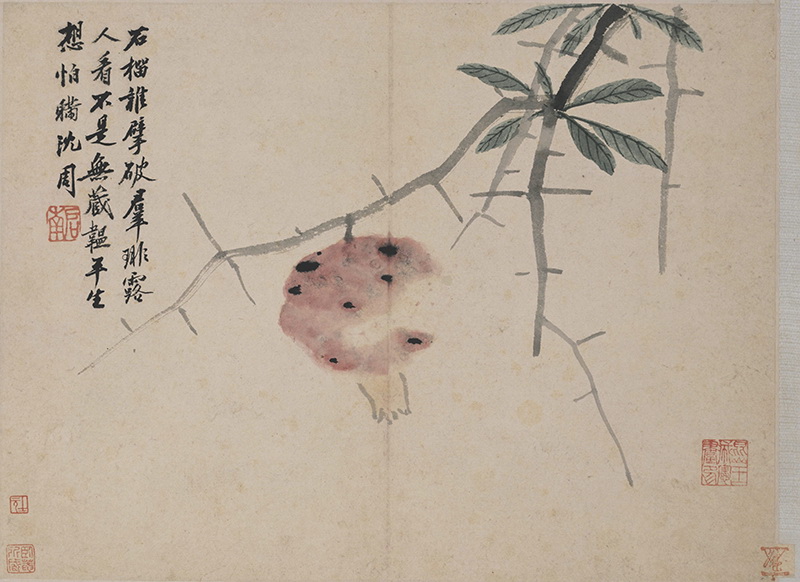 石榴誰擘破羣琲露
人看不是無藏韞平生
想怕瞞沈周
啟南